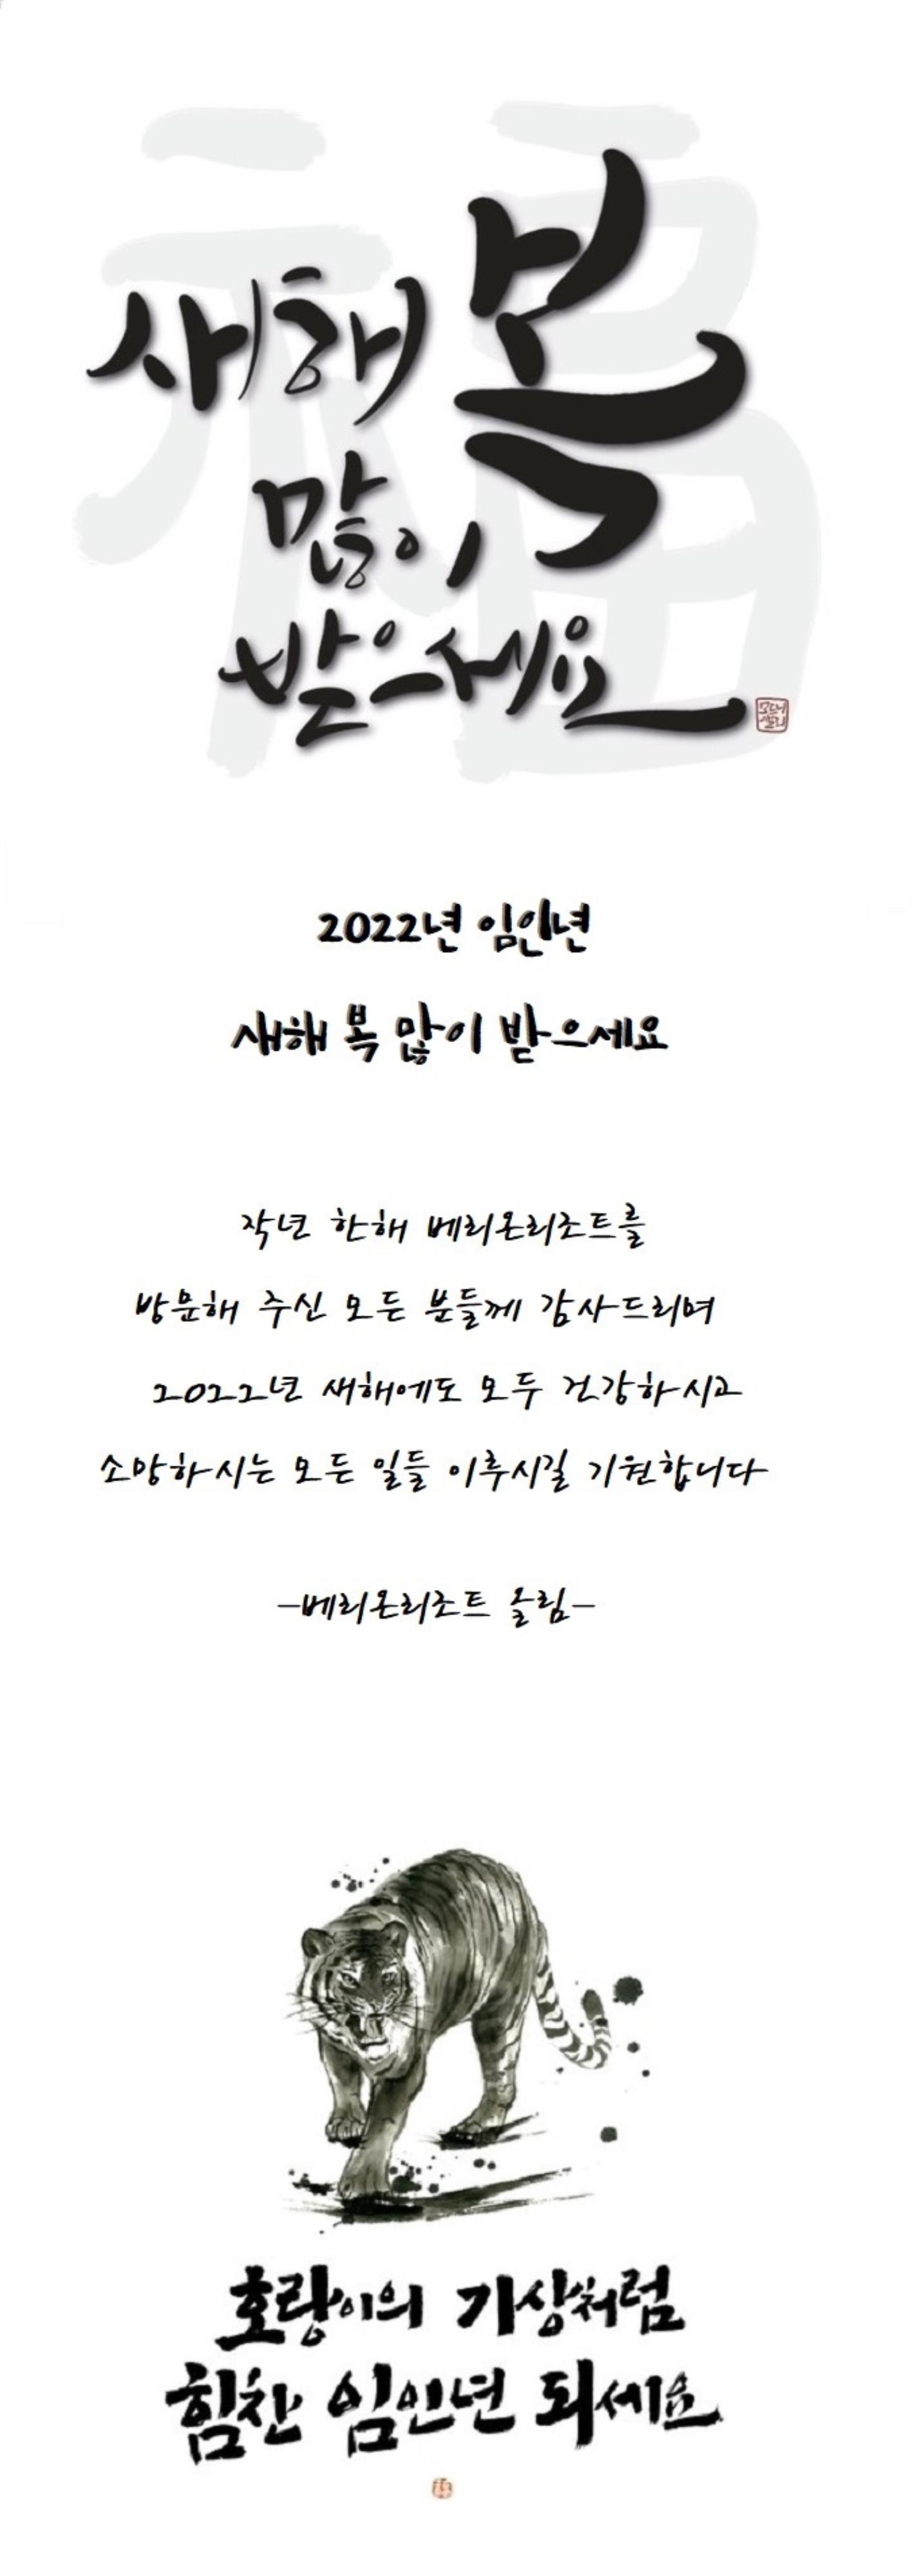 福
새해 복
많이
받으세요
2022년 임인년
새해 복 많이 받으세요
작년 한해 베리온리조트를
방문해 주신 모든 분들께 감사드리며
2022년 새해에도 모두 건강하시고
소망하시는 모든 일들 이루시길 기원합니다
-베리온리조트 올림-
호랑이의 기상처럼
힘찬 임인년 되세요